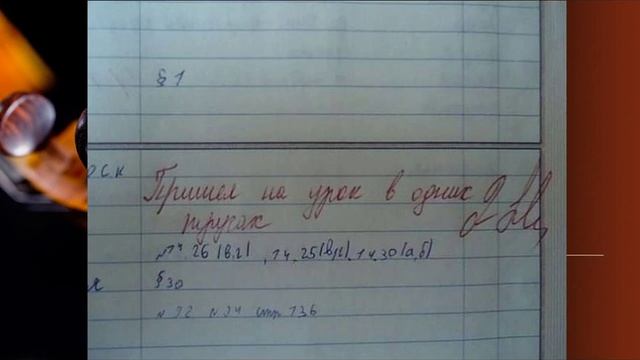 § 1
Пришел на урок в одних
трусах
№ 14.26(в,г), 14.25(в,г), 14.30(а,б)
§ 30
№ 92 № 94 стр 136